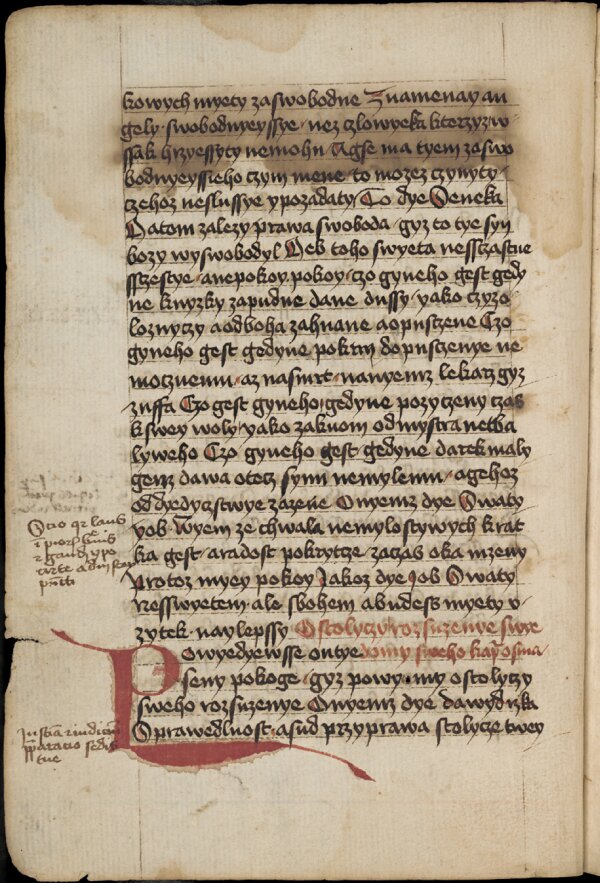 kowych myety zaswobodne Znamenay an
gely swobodnyeyssye nez czlowyeka kterzyzw
ssak hrzyessyty nemohu Agse ma tyem zaswo
bodnyeyssieho czym mene to mozez czynyty
czehoz neslussye ypozadaty To dye Seneka
Natom zalezy prawa swoboda gyz to tye syn
bozy wyswobodyl Neb toho swyeta nessczastne
ssczestye anepokoy pokoy czo gyneho gest gedy
ne knyzky zapudne dane dussy yako czyzo
loznyczy aodboha zahnane aopusczene Czo
gyneho gest gedyne pokrm dopusczenye ne
moczuemu az nasmrt nanyemz lekarz gyz
zuffa Czo gest gyneho gedyne pozyczeny czas
kswey woly yako zakuom odmystra netba
lyweho Czo gyneho gest gedyne darek maly
genz dawa otecz synu nemylemu agehoz
oddyedyczstwye zazene Onyemz dye Swaty
yob Wyem ze chwala nemylostywych krat
ka gest aradost pokrytcze zaczas oka mzeny
Protoz myey pokoy Jakoz dye Job Swaty
Nesswyetem ale sbohem abudess myety v
zytek naylepssy Ostolyczy rozsuzenye swye
Powyedyewsse ontye domy sweho kap osma
seny pokoge gyz powy my ostolyczy
sweho rozsuzenye Onyemz dye dawydyzka
Sprawedlnost asud przyprawa stolycze twey
Scio qr laus
gaudi ypo
Justicia iudiciu
pparacio sedis
tue